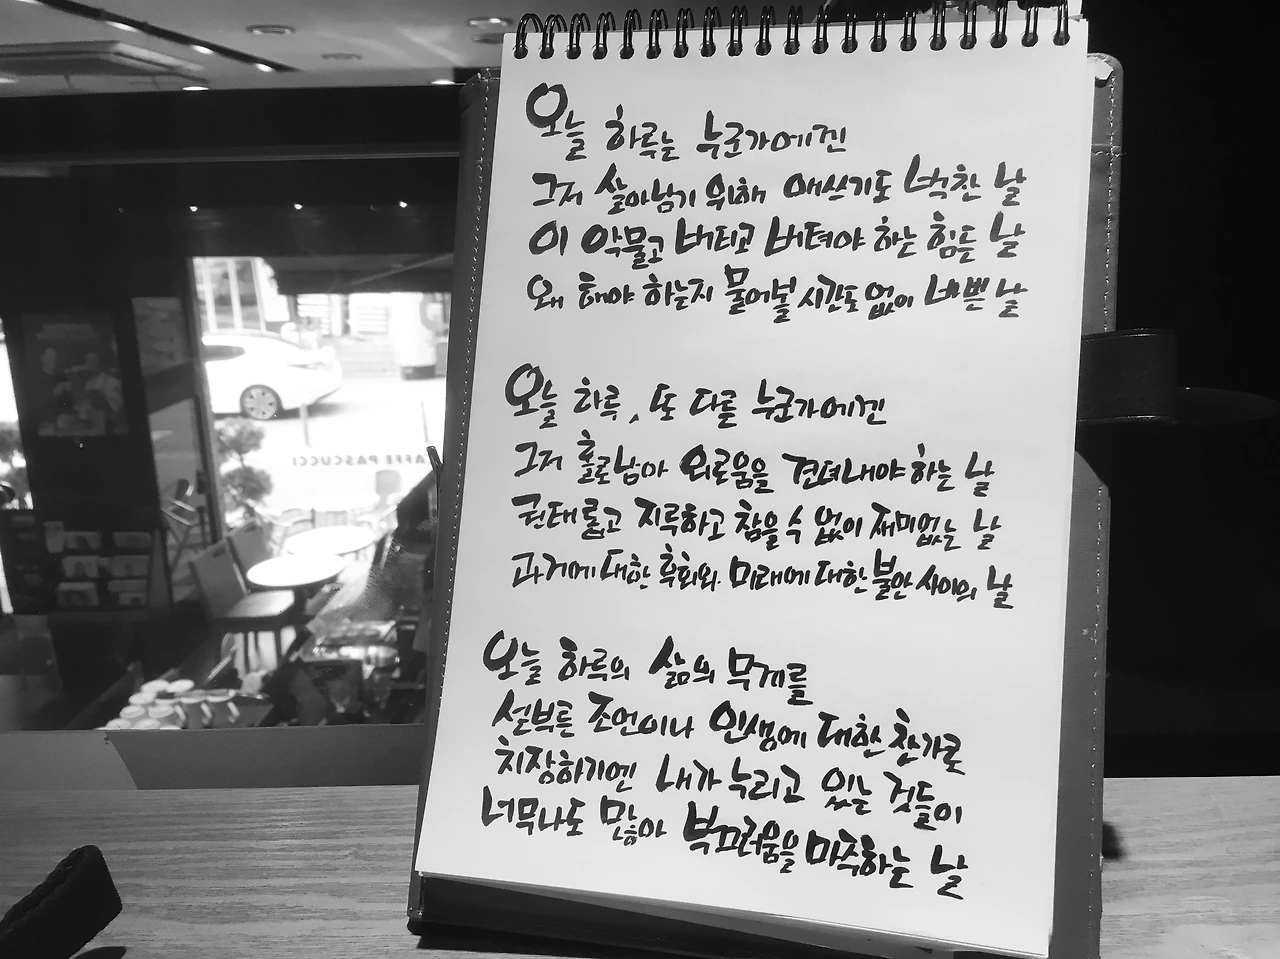 오늘 하루는 누군가에겐
그저 살아남기 위해 애쓰기도 벅찬 날
이 악물고 버티고 버텨야 하는 힘든 날
왜 해야 하는지 물어볼 시간도 없이 바쁜 날
오늘 하루, 또 다른 누군가에겐
그저 홀로 남아 외로움을 견뎌내야 하는 날
권태롭고 지루하고 참을 수 없이 재미없는 날
과거에 대한 후회와 미래에 대한 불안 사이의 날
오늘 하루의 삶의 무게를
섣부른 조언이나 인생에 대한 찬가로
치장하기엔 내가 누리고 있는 것들이
너무나도 많아 부끄러움을 마주하는 날
CAFFE PASCUCCI